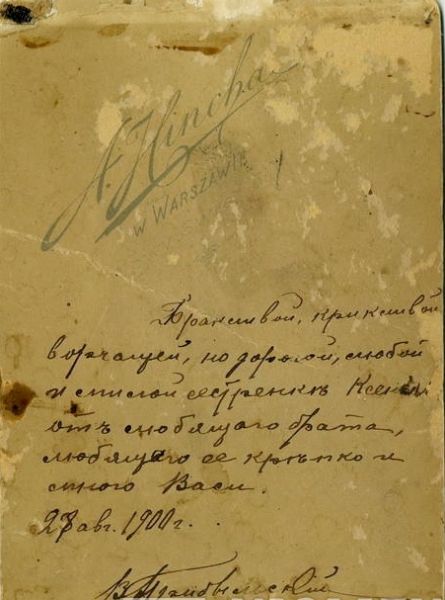 A. Hincha
W WARSZAWIE
Бранливой, крикливой
ворчащей, но дорогой, любой
и милой сестренкѣ Ксении
отъ любящаго брата,
любящаго ее крѣпко и
много Васи.
28 авг. 1900 г.